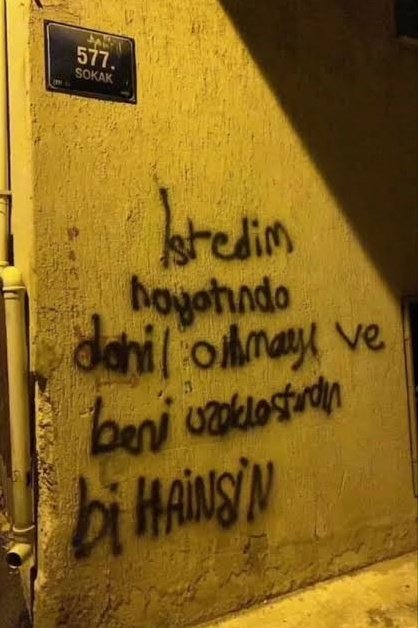 577.
SOKAK
İstedim
hayatında
dahil olmayı ve
beni uzaklaştırdın
bi HAiNSiN